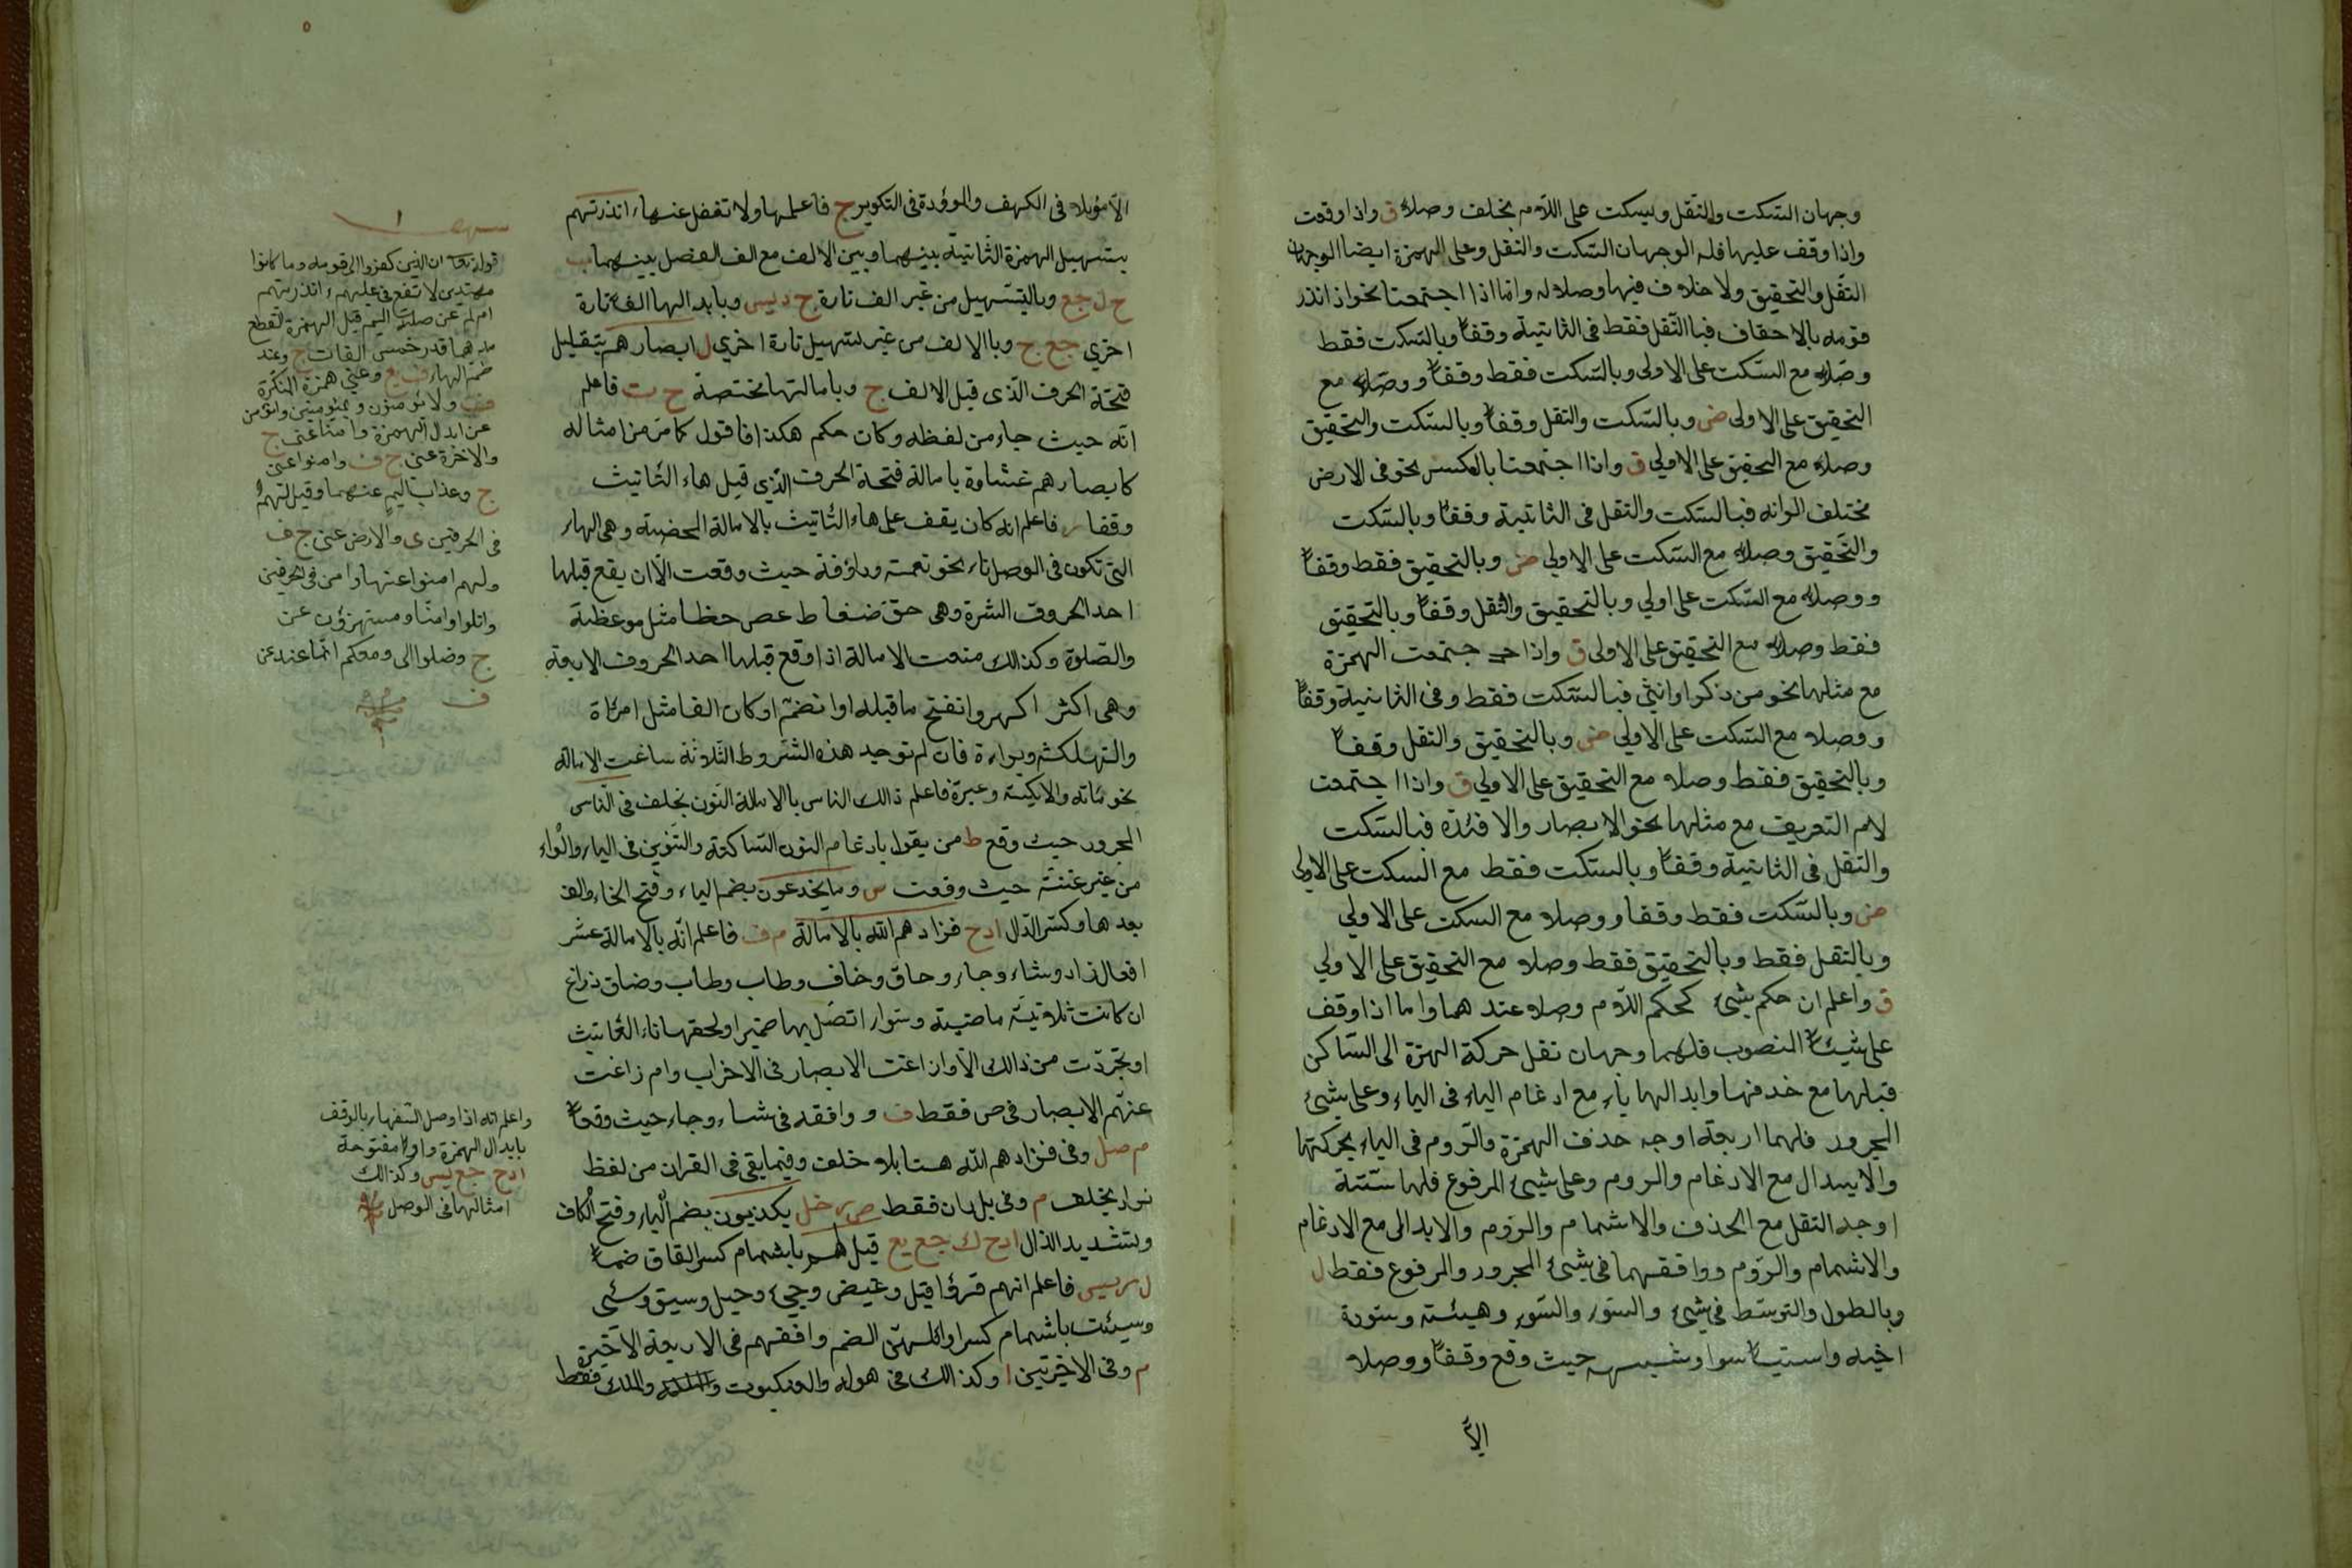 وجهان السّكت والنقل وليسكت على اللّام بخلف وصلاً ق واذا وقعت
واذا وقف عليها فله الوجهان السّكت والنقل وعلى الهمزة ايضا الوجهان
النقل والتحقيق ولا خلاف فيها وصلا له وامّا اذا اجتمعتا نحو اذ انذر
قومه بالاحقاف فبالنّقل فقط فى الثانية وقفاً وبالسّكت فقط
وصلاً مع السّكت على الاولى وبالسّكت فقط وقفاً ووصلاً مع
التحقيق على الاولى ض وبالسّكت والنقل وقفاً وبالسّكت والتحقيق
وصلاً مع التحقيق على الاولي ق واذا اجتمعتا بالعكس نحو فى الارض
مختلف الوانه فبالسّكت والنقل فى الثانية وقفاً وبالسّكت
والتّحقيق وصلاً مع السّكت على الاولي ض وبالتحقيق فقط وقفاً
ووصلاً مع السّكت على اولي وبالتحقيق والنّقل وقفاً وبالتحقيق
فقط وصلاً مع التحقيق على الاولى ق واذا جتمعت الهمزة
مع مثلها نحو من ذكر او انثي فبالسّكت فقط وفى الثانية وقفاً
ووصلا مع السّكت على الاولي ض وبالتحقيق والنقل وقفاً
وبالتحقيق فقط وصلا مع التحقيق على الاولي ق واذا اجتمعت
لام التعريف مع مثلها نحو الابصار والافئدة فبالسّكت
والنقل فى الثانية وقفاً وبالسّكت فقط مع السكت على الاولى
ض وبالسّكت فقط وقفا ووصلا مع السكت على الاولي
وبالنقل فقط وبالتحقيق فقط وصلا مع التحقيق على الاولي
ق واعلم ان حكم شيئ كحكم اللّام وصلا عندهما واما اذا وقف
على شيئاً المنصوب فلهما وجهان نقل حركة الهمزة الى السّاكن
قبلها مع حذفها وابدالها ياء مع ادغام الياء فى الياء وعلى شيئ
المجرور فلهما اربعة اوجه حذف الهمزة والرّوم فى الياء بحركتها
والابدال مع الادغام والروم وعلى شيئ المرفوع فلها ستّة
اوجه النقل مع الحذف والاشمام والرّوم والابدال مع الادغام
والاشمام والرّوم ووافقهما فى شيئ المجرور والمرفوع فقط ل
وبالطول والتوسّط فى شيئ والسّور والسّور وهيئة وسورة
اخيه واستيا سوا وشبهه حيث وقع وقفاً ووصلا
الاّ
الاّ موئلا فى الكهف والموؤدة فى التكوير ج فاعلمها ولا تغفل عنها ءانذرتهم
بتسهيل الهمزة الثّانية بينهما وبين الالف مع الف الفصل بينهما ب
ح ل جع وبالتسهيل من غير الف تارة ج د يس وبابدالها الفاً تارة
اخري جع ج وباالالف من غير تسهيل تارة اخري ل ابصارهم بتقليل
فتحة الحرف الّذى قبل الالف ج وبامالتها مختصة ح ت فاعلم
انّه حيث جاء من لفظه وكان حكم هكذا فاقول كما مرّ من امثاله
كابصارهم غشاوة بامالة فتحة الحرف الّذي قبل هاء التّانيث
وقفا ر فاعلم انه كان يقف على هاء التّانيث بالامالة المحضة وهى الهاء
التى تكون فى الوصل تاء نحو نعمة ورأفة حيث وقعت الّا ان يقع قبلها
احد الحروف العشرة وهى حق ضغاط عص خظا مثل موعظة
والصّلوة وكذالك منعت الامالة اذا وقع قبلها احد الحروف الاربعة
وهى اكثر اكهر وانفتح ما قبله او انضمّ او كان الفا مثل امرئاة
والتهلكة وبراءة فان لم توجد هذه الشّروط الثّلاثة ساغت الامالة
نحو مائة والايكة وعبرة فاعلم ذالك الناس بالامالة النّون بخلف فى النّاس
المجرور حيث وقع ط من يقول بادغام النون السّاكنة والتّنوين فى الياء والواو
من غير غنّة حيث وقعت س وما يخدعون بضم الياء وفتح الخاء والف
بعدها وكسر الدّال ا د ح فزادهم اللّه بالامالة م ف فاعلم انّه بالامالة عشر
افعال زاد وشاء وجاء وحاق وخاف وطاب وطاب وضاق زاغ
ان كانت ثلاثيّة ماضية وسواء اتصّل بها ضمير او لحقها تاء التّانيث
او تجرّدت من ذالك الّا واذ زاغت الابصار فى الاحزاب وام زاغت
عنهم الابصار فى ص فقط ف ووافقه فى شاء وجاء حيث وقعاً
م صل وفى فزادهم اللّه هنا بلا خلف وفيما بقى فى القران من لفظ
زاد بخلف م وفى بل ران فقط ص ر خل يكذبون بضم الياء وفتح الكاف
وتشديد الذال ا د ح ك جع يع قيل لهم باشمام كسر القاق ضماً
ل ر يس فاعلم انهم قرؤا قيل وغيض وجيئ وحيل وسيق وسئى
وسيئت باشمام كسر اوائلهنّ الضم وافقهم فى الاربعة الاخيرة
م وفى الاخرتين ا وكذالك فى هوله والعنكبوت والملك فقط
قوله تعا ان الذين كفروا الى قومه وما كانوا
مهتدين لا تفع فى عليهم ءانذرتهم
ام لم عن صلة الميم قبل الهمزة لقطع
مدهما قدر خمس الفات ج وعند
ضم الهاء ف يع وعنى همزة المنكرة
ف ولا يؤمنون وبمؤمنين وانؤمن
عن ابدال الهمزة وامنّا عنى ج
والاخرة عن ج ف وامنوا عنى
ج وعذاب اليم عنهما وقيل لهم
فى الحرفين ى والارض عنى ج ف
ولهم امنوا عنها وا من فى الحرفين
واتلوا وامنّا ومستهزؤن عن
ج وضلوا الى ومعكم انّما عند عن
ف
واعلم انّه اذا وصل السّفهاء بالوقف
بابدال الهمزة واواً مفتوحة
ا د ح جع يس وكذالك
امثالها فى الوصل